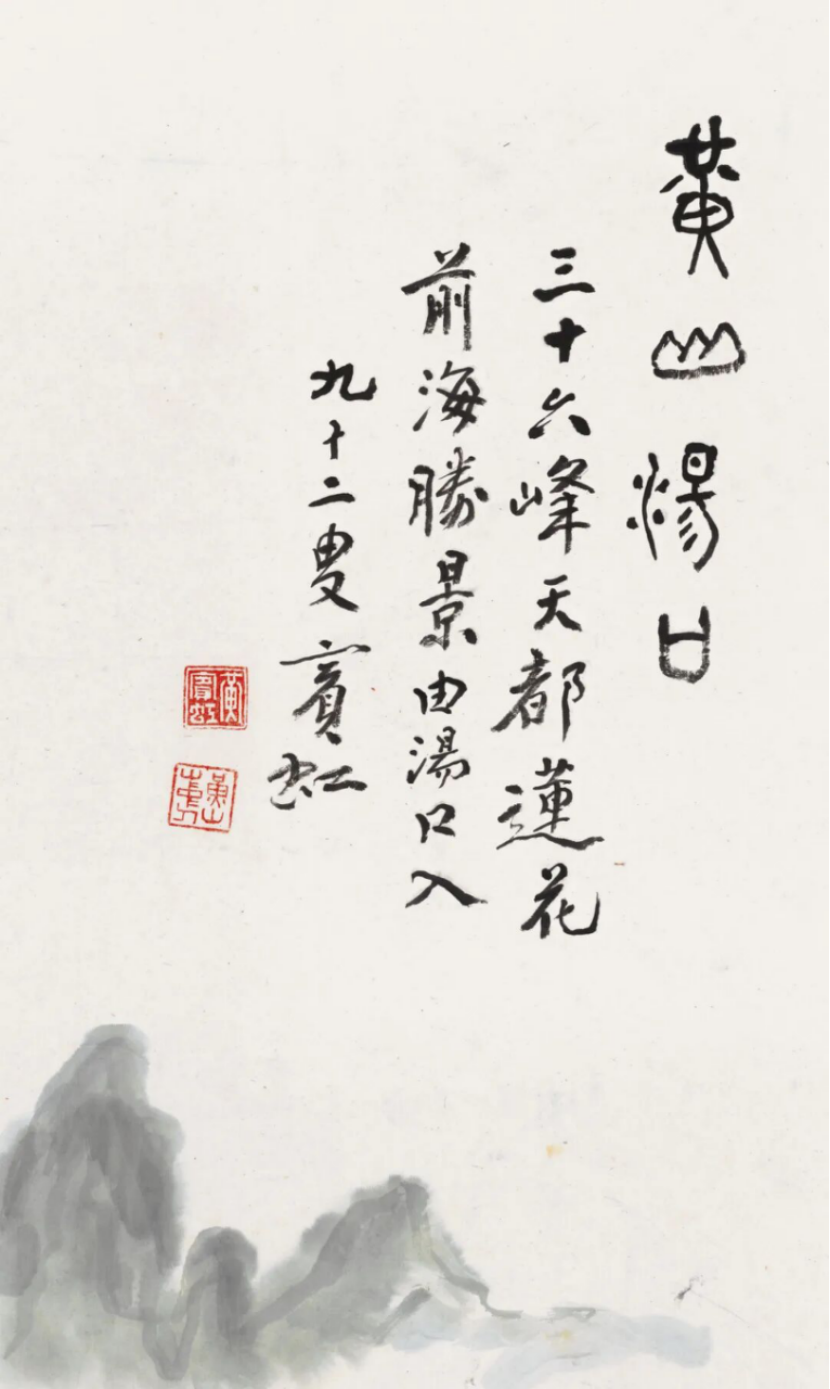 黃山湯口
三十六峰天都蓮花
前海勝景由湯口入
九十二叟賓虹
黃賓虹